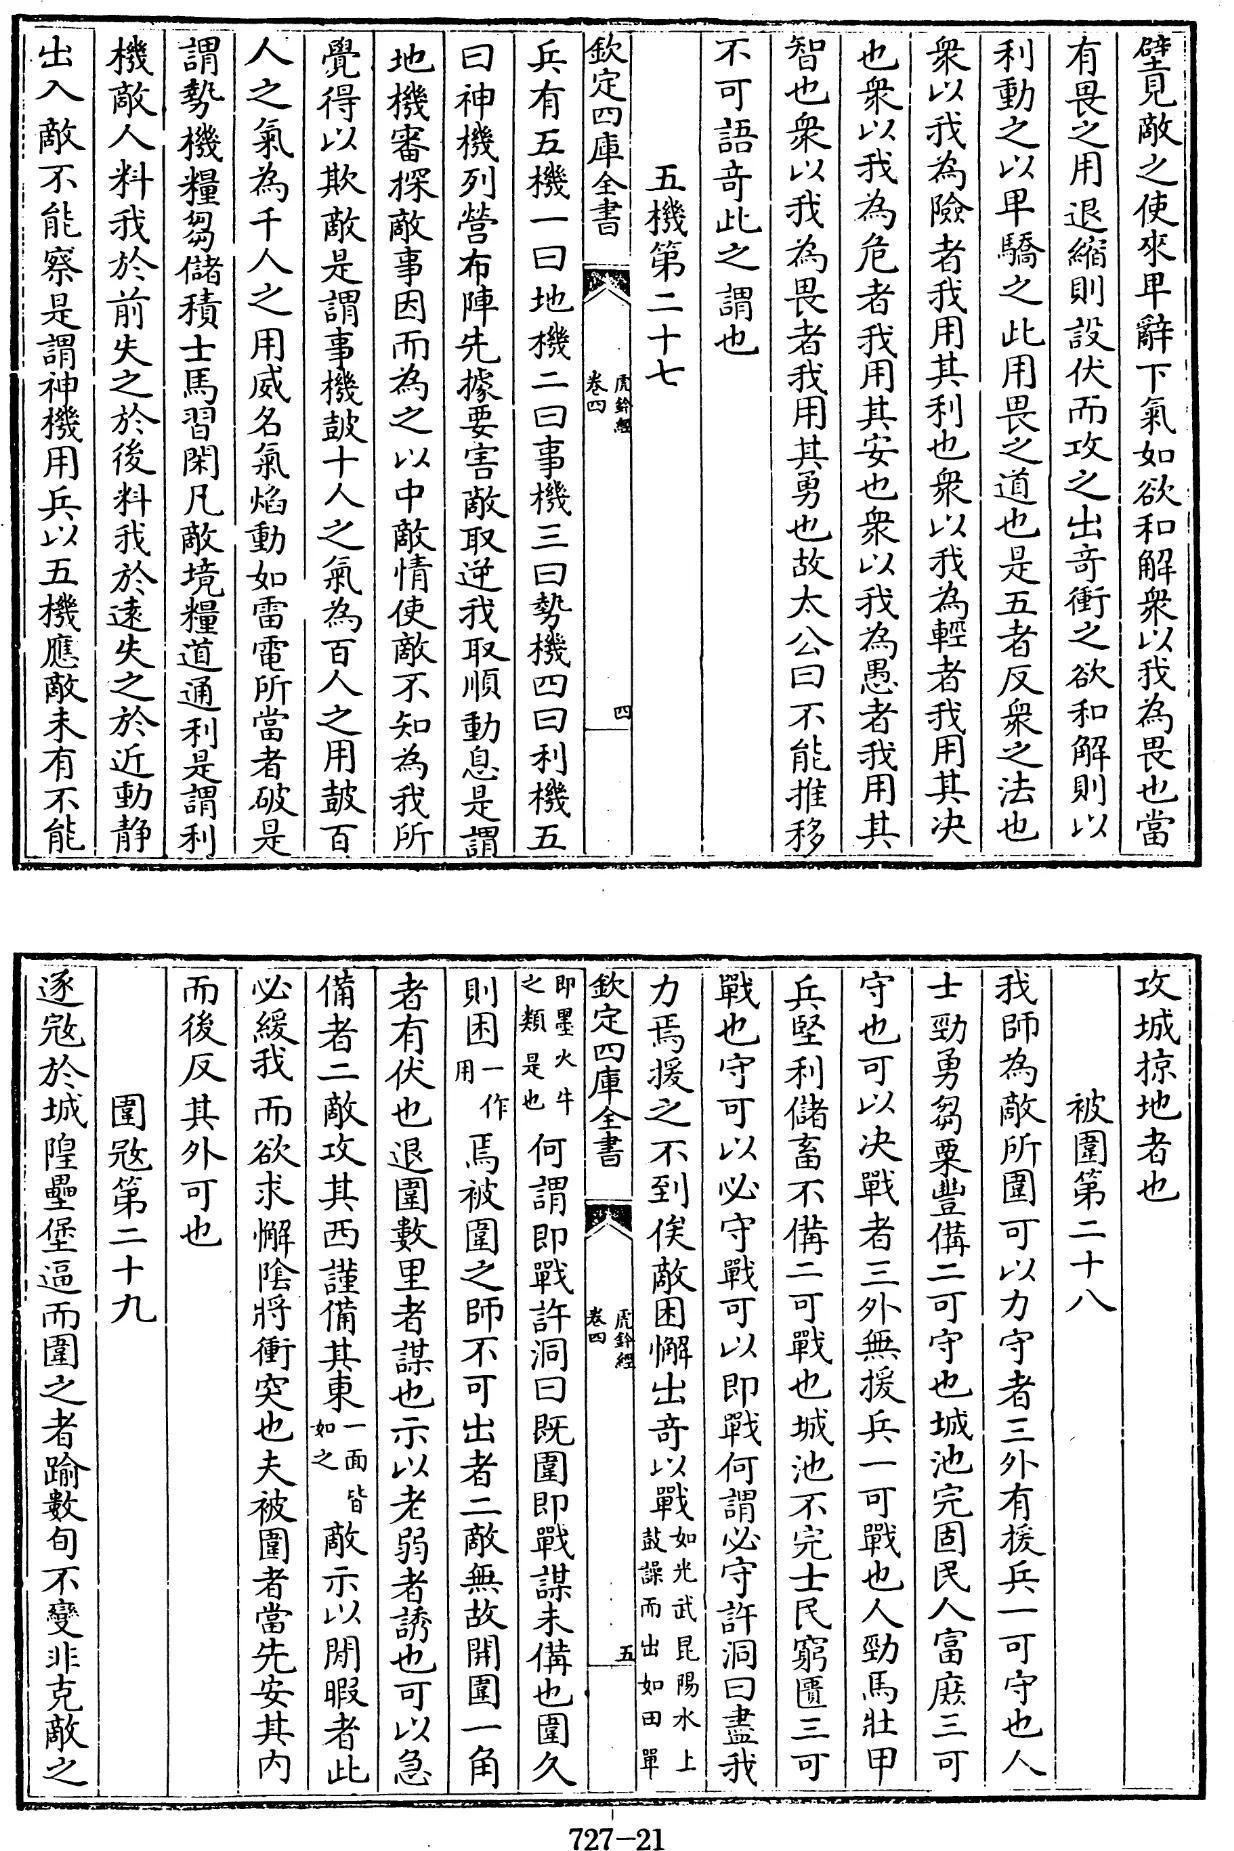 壁見敵之使來卑辭下氣如欲和解衆以我為畏也當
有畏之用退縮則設伏而攻之出奇衝之欲和解則以
利動之以卑驕之此用畏之道也是五者反衆之法也
衆以我為險者我用其利也衆以我為輕者我用其决
也衆以我為危者我用其安也衆以我為愚者我用其
智也衆以我為畏者我用其勇也故太公曰不能推移
不可語奇此之謂也
五機第二十七
欽定四庫全書
虎鈐經
卷四
四
兵有五機一曰地機二曰事機三曰勢機四曰利機五
曰神機列營布陣先據要害敵取逆我取順動息是謂
地機審探敵事因而為之以中敵情使敵不知為我所
覺得以欺敵是謂事機鼓十人之氣為百人之用鼓百
人之氣為千人之用威名氣焰動如雷電所當者破是
謂勢機糧芻儲積士馬習閑凡敵境糧道通利是謂利
機敵人料我於前失之於後料我於遠失之於近動静
出入敵不能察是謂神機用兵以五機應敵未有不能
攻城掠地者也
被圍第二十八
我師為敵所圍可以力守者三外有援兵一可守也人
士勁勇芻粟豐備二可守也城池完固民人富庶三可
守也可以决戰者三外無援兵一可戰也人勁馬壯甲
兵堅利儲畜不備二可戰也城池不完士民窮匱三可
戰也守可以必守戰可以即戰何謂必守許洞曰盡我
力焉援之不到俟敵困懈出奇以戰如光武昆陽水上
鼓譟而出如田單
欽定四庫全書
虎鈐經
卷四
五
即墨火牛
之類是也何謂即戰許洞曰既圍即戰謀未備也圍久
則困一作
用焉被圍之師不可出者二敵無故開圍一角
者有伏也退圍數里者謀也示以老弱者誘也可以急
備者二敵攻其西謹備其東一面皆
如之敵示以閒暇者此
必緩我而欲求懈陰將衝突也夫被圍者當先安其内
而後反其外可也
圍宼第二十九
逐宼於城隍壘堡逼而圍之者踰數旬不變非克敵之
727-21